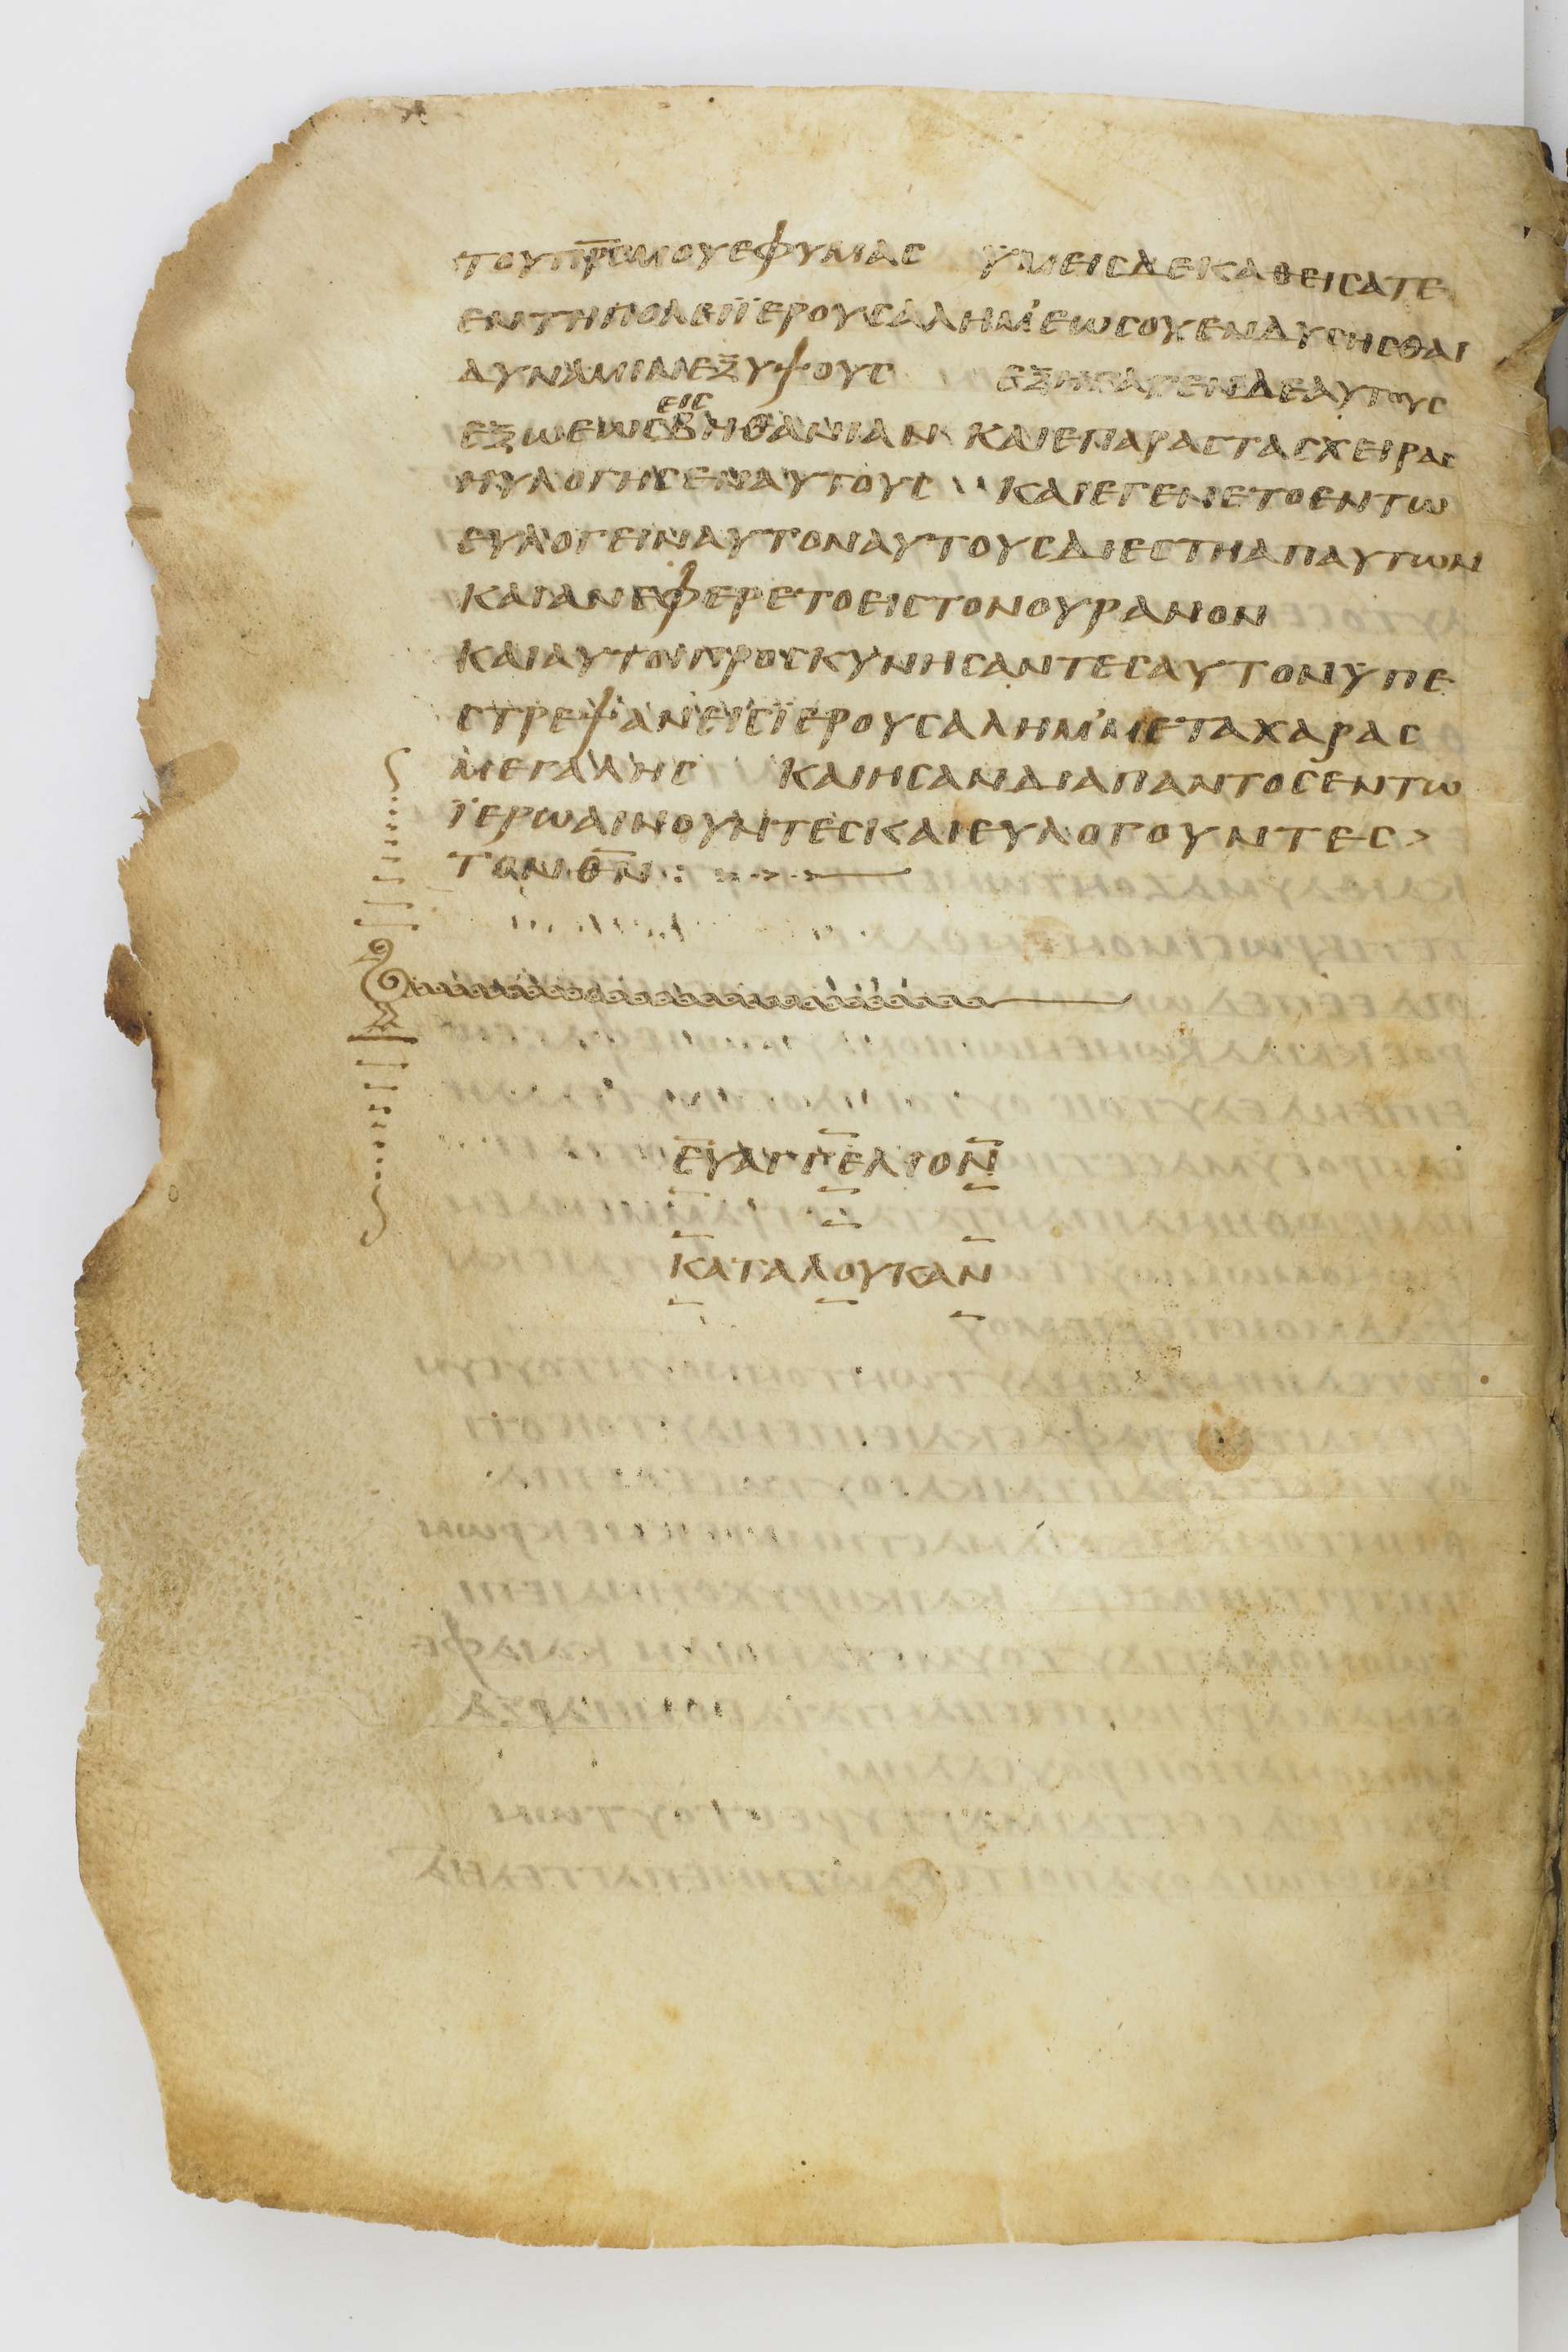 ΤΟΥΠΡ̅Σ̅ΜΟΥΕΦΥΜΑΣ ΫΜΕΙΣΔΕΚΑΘΕΙΣΑΤΕ
ΕΝΤΗΠΟΛΕΙΪΕΡΟΥΣΑΛΗΜ’ΕΩΣΟΥΕΝΔΥΣΗΣΘΑΙ
ΔΥΝΑΜΙΝΕΞΥΨΟΥΣ ΕΞΗΓΑΓΕΝΔΕΑΥΤΟΥΣ
ΕΙΣ
ΕΞΩΕΩΣΒΗΘΑΝΙΑΝ ΚΑΙΕΠΑΡΑΣΤΑΣΧΕΙΡΑΣ
ΗΥΛΟΓΗΣΕΝΑΥΤΟΥΣ ΚΑΙΕΓΕΝΕΤΟΕΝΤΩ
ΕΥΛΟΓΕΙΝΑΥΤΟΝΑΥΤΟΥΣΔΙΕΣΤΗΑΠΑΥΤΩΝ
ΚΑΙΑΝΕΦΕΡΕΤΟΕΙΣΤΟΝΟΥΡΑΝΟΝ
ΚΑΙΑΥΤΟΙΠΡΟΣΚΥΝΗΣΑΝΤΕΣΑΥΤΟΝΥΠΕ
ΣΤΡΕΨΑΝΕΙΣΪΕΡΟΥΣΑΛΗΜ’ΜΕΤΑΧΑΡΑΣ
ΜΕΓΑΛΗΣ ΚΑΙΗΣΑΝΔΙΑΠΑΝΤΟΣΕΝΤΩ
ΪΕΡΩΑΙΝΟΥΝΤΕΣΚΑΙΕΥΛΟΓΟΥΝΤΕΣ>
ΤΟΝΘ̅Ν̅:
ΕΥΑΓΓΕΛΙΟΝ
ΚΑΤΑΛΟΥΚΑΝ